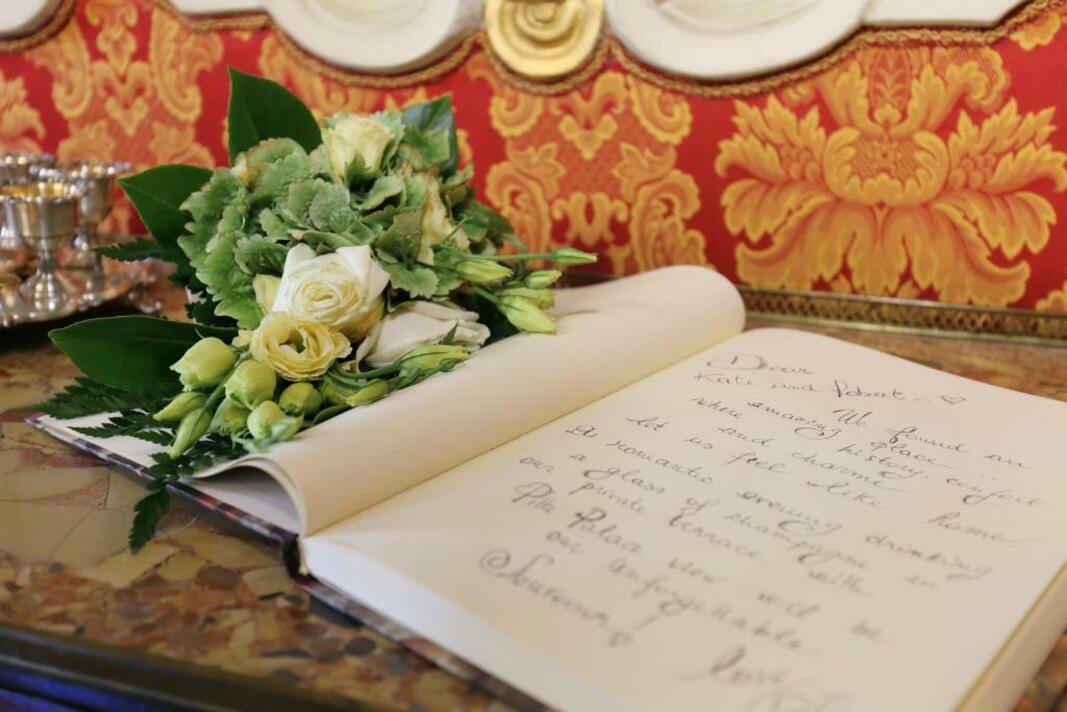 Dear
Kate and Robert... ♡
We found an
amazing place...
where history, confort
and charme
let us feel like home
A romantic evening drinking
a glass of champagne in
our private terrace with
Pitti Palace view will be
our unforgettable
Souvenir! ♡
love